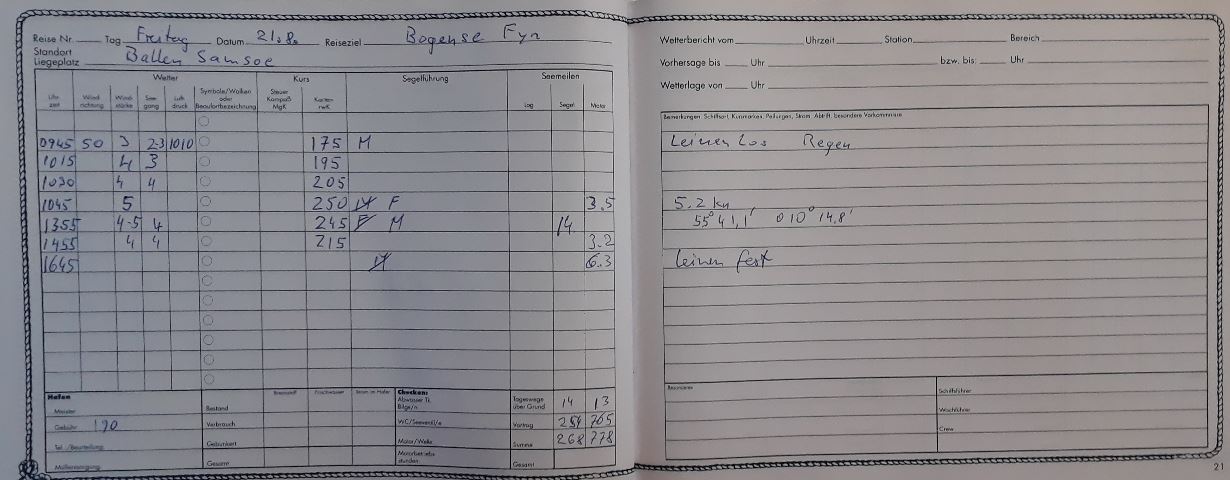 Reise Nr. Tag Freitag Datum 21.8. Reiseziel Bogense Fyn
Standort
Liegeplatz Ballen Samsoe
Wetter Kurs Segelführung Seemeilen
Uhr-zeit Wind-richtung Wind-stärke See-gang Luft-druck Symbole/Wolken oder Beaufortbezeichnung Steuer Kompaß MgK Karten rwK Log Segel Motor
0945 SO 3 2-3 1010 175 M
1015 4 3 195
1030 4 4 205
1045 5 250 M F 3.5
1355 4-5 4 245 F M 14
1455 4 4 215 3.2
1645 M 6.3
Hafen Brennstoff Frischwasser Strom im Hafen Checken: Tageswege über Grund 14 13
Meister Bestand Abwasser Tk. Bilge/n
Gebühr 190 Verbrauch WC/Seeventil/e Vortrag 254 765
Tel./Beurteilung Gebunkert Motor/Welle Summe 268 778
Müllentsorgung Gesamt Motorbetriebsstunden Gesamt
Wetterbericht vom Uhrzeit Station Bereich
Vorhersage bis Uhr bzw. bis: Uhr
Wetterlage von Uhr
Bemerkungen: Schiffsort, Kursmarken, Peilungen, Strom, Abtrift, besondere Vorkommnisse
Leinen Los Regen
5.2 kn
55° 41,1' 010° 14,8'
Leinen fest
Besonderes Schiffsführer
Wachführer
Crew
21